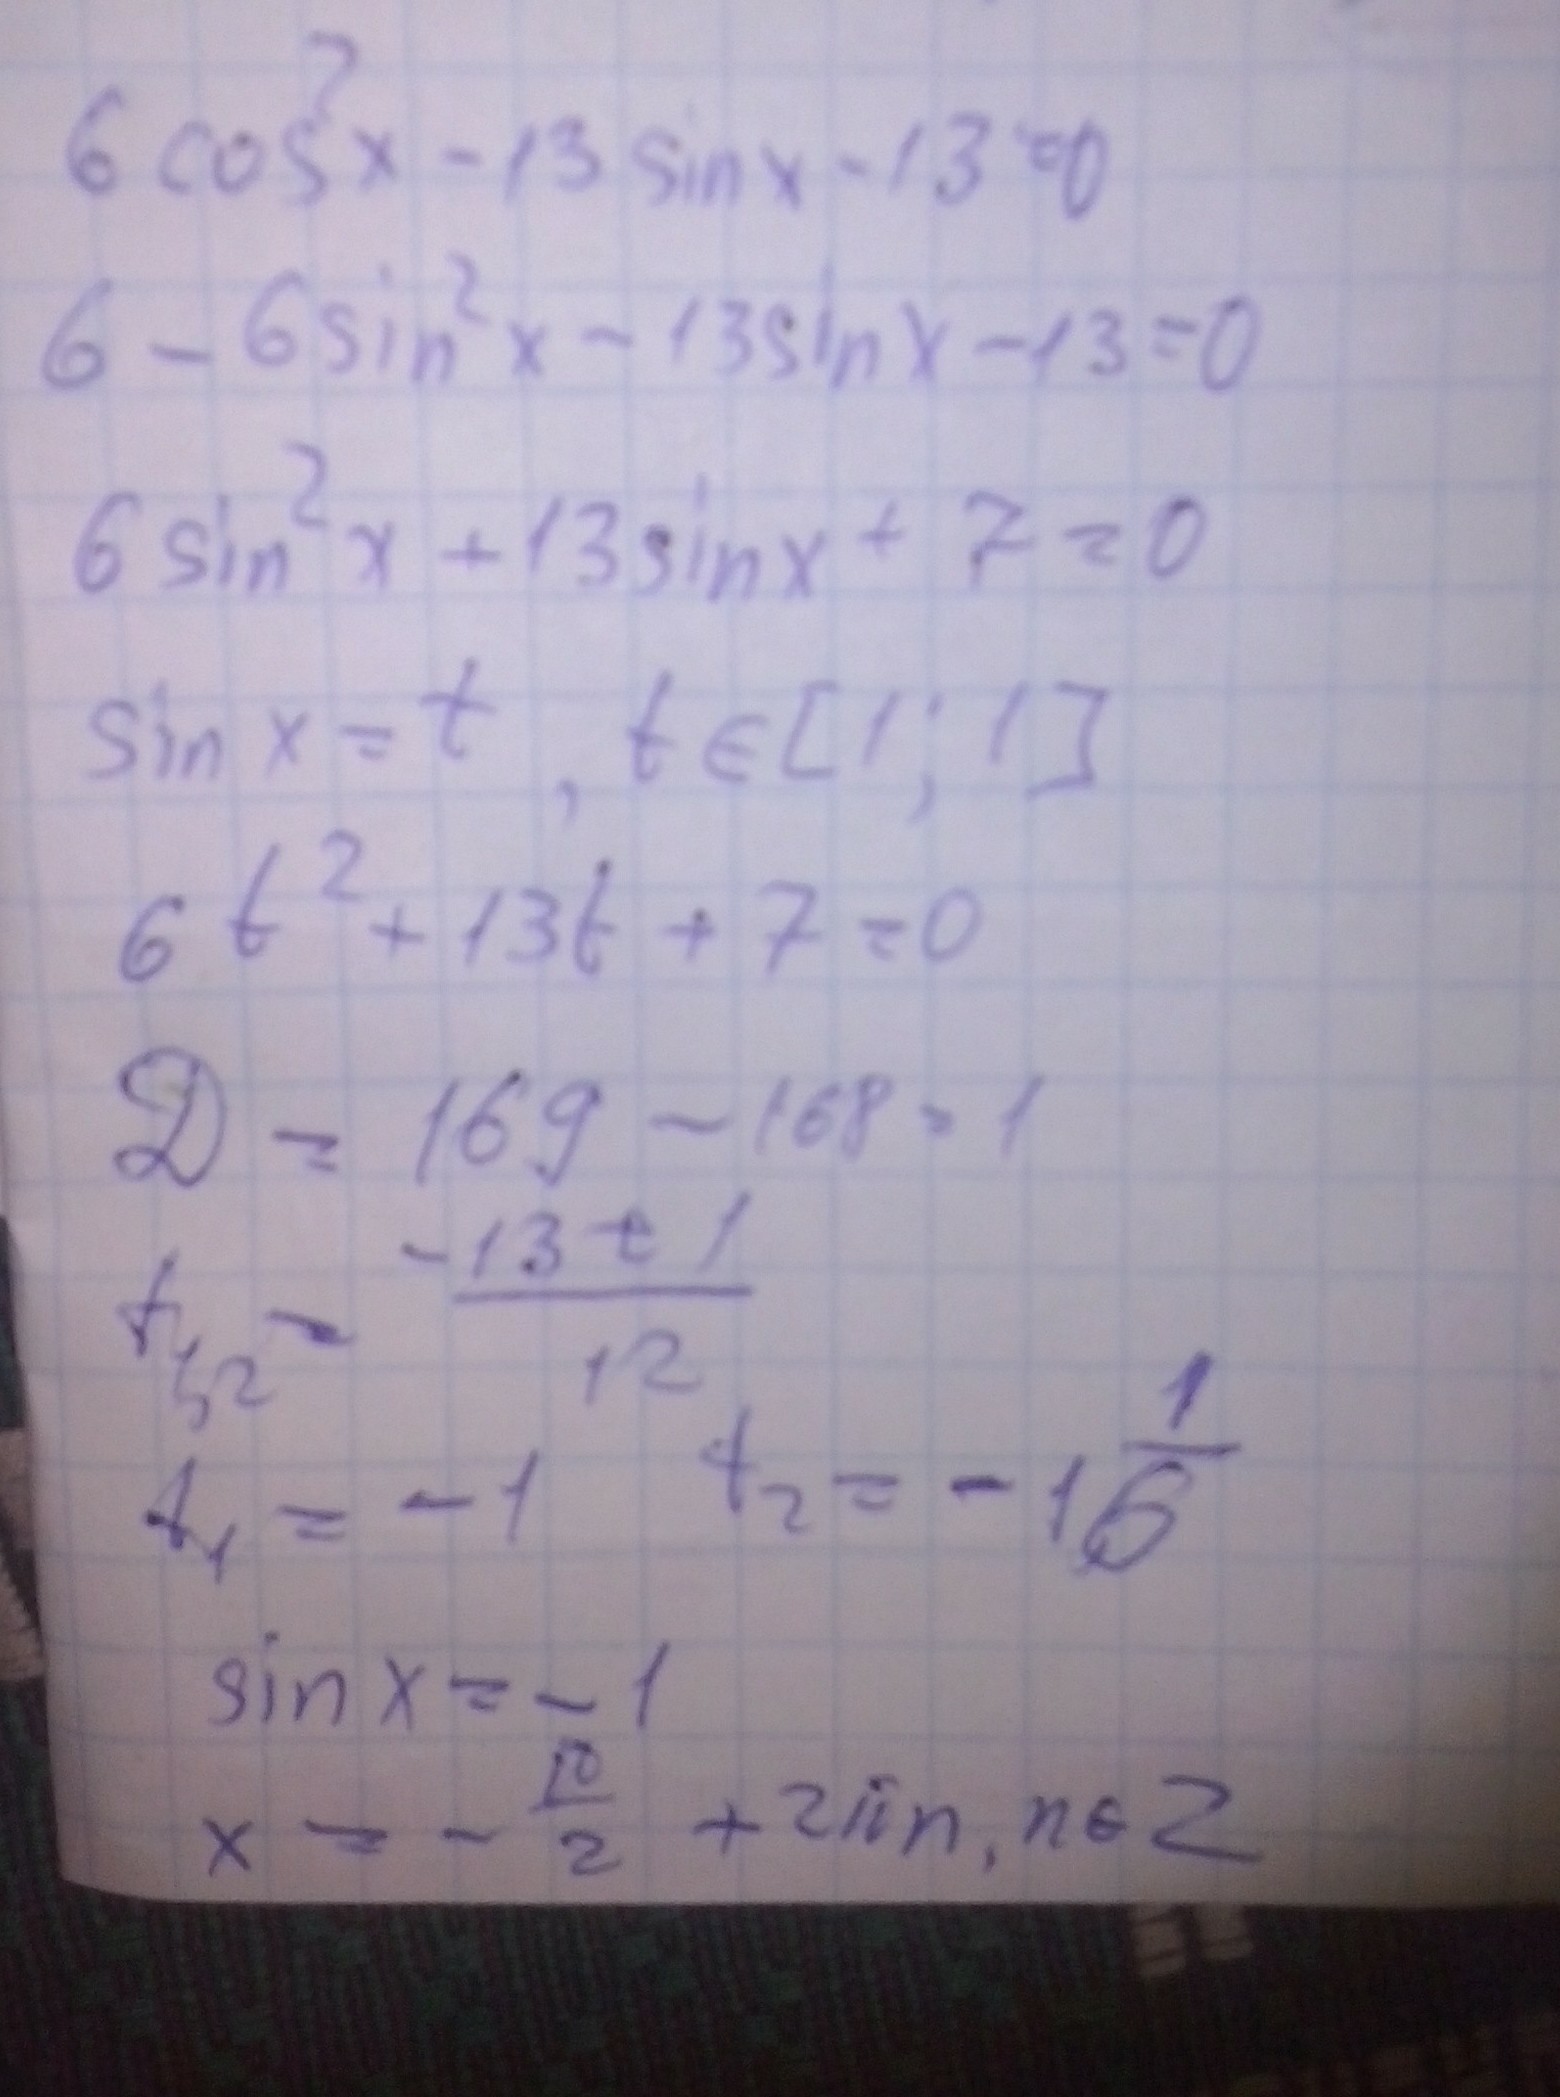 6 cos²x - 13 sin x - 13 = 0
6 - 6 sin²x - 13 sin x - 13 = 0
6 sin²x + 13 sin x + 7 = 0
sin x = t, t ∈ [1; 1]
6 t² + 13t + 7 = 0
D = 169 - 168 = 1
t₁,₂ = (-13 ± 1)/12
t₁ = -1 t₂ = -1 1/6
sin x = -1
x = - π/2 + 2πn, n ∈ Z